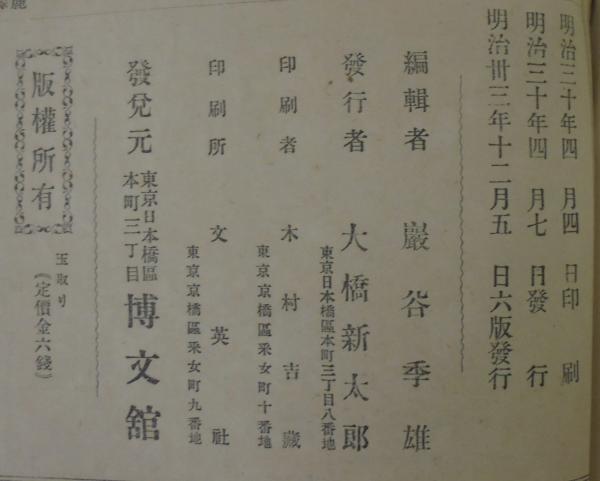 明治三十年四月四日印刷
明治三十年四月七日發行
明治卅三年十二月五日六版發行
編輯者 巖谷季雄
東京日本橋區本町三丁目八番地
發行者 大橋新太郎
印刷者 木村吉藏
東京京橋區釆女町十番地
印刷所 文英社
東京京橋區釆女町九番地
發兌元 東京日本橋區
本町三丁目 博文舘
玉取り
(定價金六錢)
版權所有